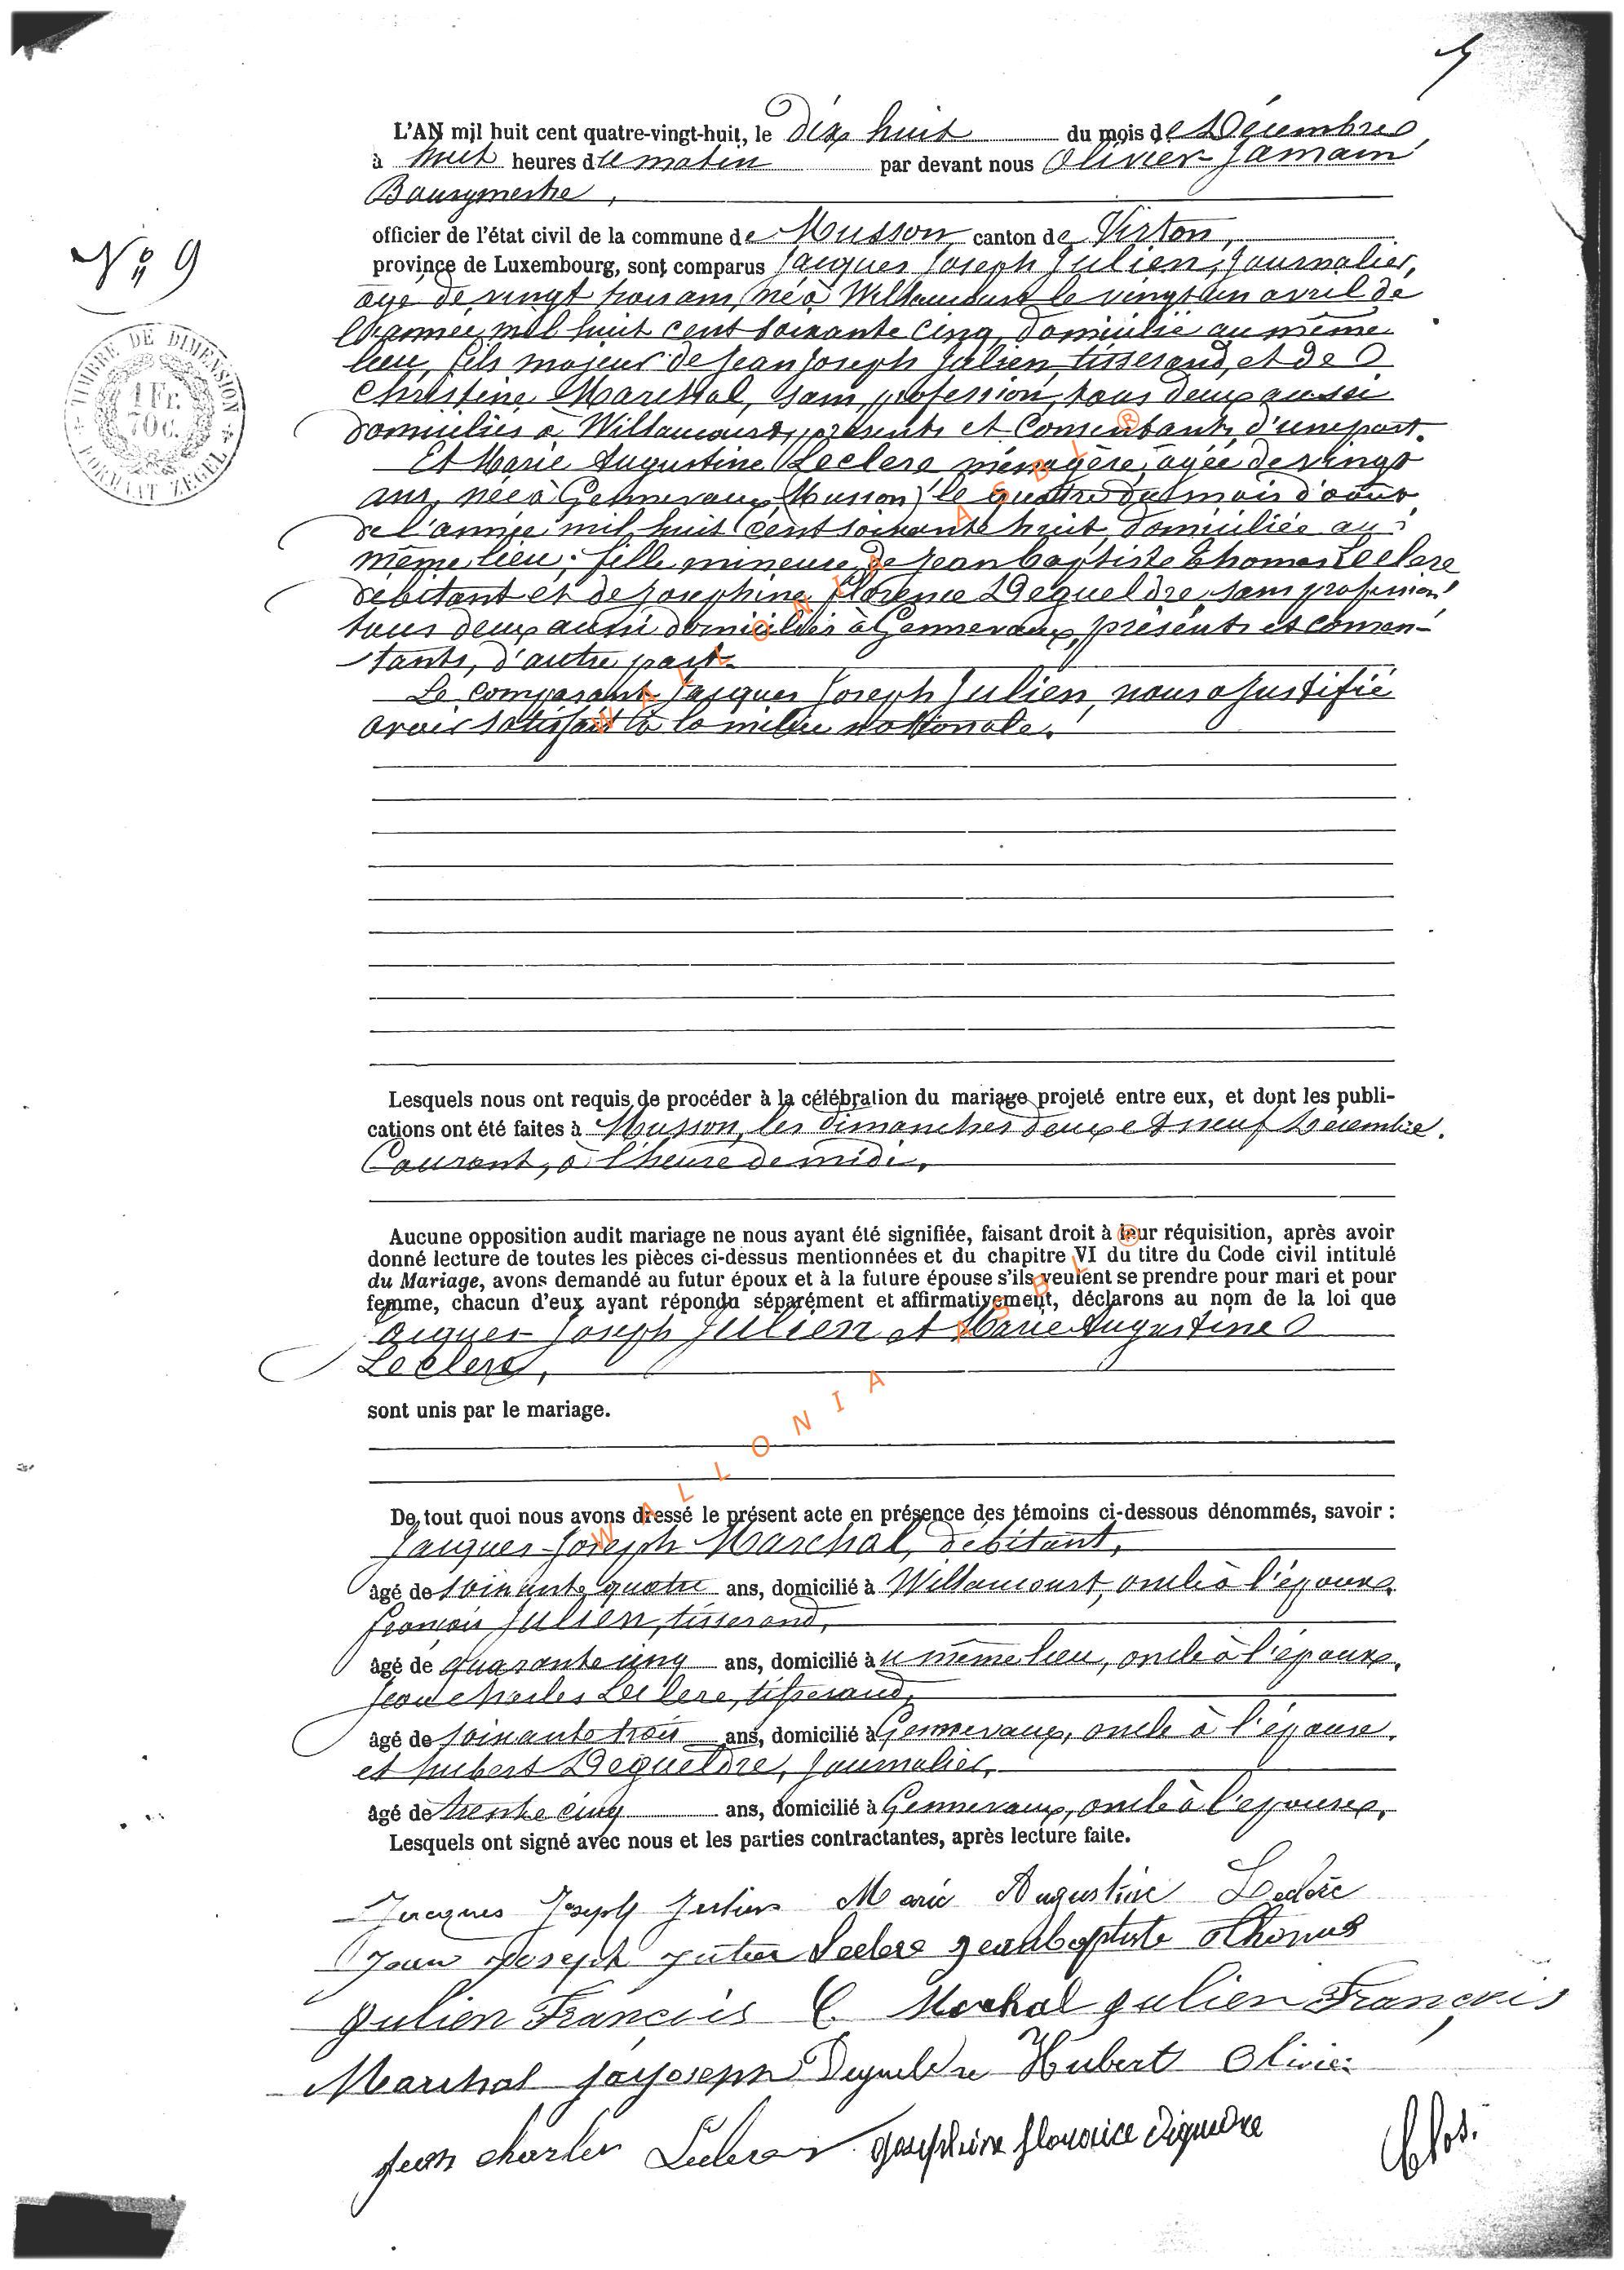 5
L'AN mil huit cent quatre-vingt-huit, le dix huit du mois de Décembre,
à huit heures du matin par devant nous Olivier Jamain
Bourgmestre,
officier de l'état civil de la commune de Musson, canton de Virton,
province de Luxembourg, sont comparus Jacques Joseph Julien, Journalier,
âgé de vingt trois ans, né à Willancourt le vingt un avril de
l'année mil huit cent soixante cinq, domicilié au même
lieu, fils majeur de Jean Joseph Julien, tisserand, et de
Christine Marchal, sans profession, tous deux aussi
domiciliés à Willancourt, présents et Consentants, d'une part.
Et Marie Augustine Leclere ménagère, âgée de vingt
ans, née à Gennevaux (Musson) le quatre du mois d'août
de l'année mil huit cent soixante huit, domiciliée au
même lieu, fille mineure de Jean Baptiste Thomas Leclere
débitant et de Josephine Florence Dequeldre, sans profession
tous deux aussi domiciliés à Gennevaux, présents et consen-
tants, d'autre part.
Le comparant Jacques Joseph Julien, nous a justifié
avoir satisfait à la milice nationale.
Nº 9
TIMBRE DE DIMENSION
1 Fr.
70 C.
FORMAAT ZEGEL
Lesquels nous ont requis de procéder à la célébration du mariage projeté entre eux, et dont les publi-
cations ont été faites à Musson, les dimanches deux et neuf Décembre
Courant, à l'heure de midi.
Aucune opposition audit mariage ne nous ayant été signifiée, faisant droit à leur réquisition, après avoir
donné lecture de toutes les pièces ci-dessus mentionnées et du chapitre VI du titre du Code civil intitulé
du Mariage, avons demandé au futur époux et à la future épouse s'ils veulent se prendre pour mari et pour
femme, chacun d'eux ayant répondu séparément et affirmativement, déclarons au nom de la loi que
Jacques Joseph Julien et Marie Augustine
Leclere,
sont unis par le mariage.
De tout quoi nous avons dressé le présent acte en présence des témoins ci-dessous dénommés, savoir :
Jacques Joseph Marchal, débitant,
âgé de soixante quatre ans, domicilié à Willancourt, oncle à l'époux.
François Julien, tisserand,
âgé de quarante cinq ans, domicilié au même lieu, oncle à l'époux.
Jean charles Leclere, tisserand,
âgé de soixante trois ans, domicilié à Gennevaux, oncle à l'épouse.
et hubert Dequeldre, Journalier,
âgé de trente cinq ans, domicilié à Gennevaux, oncle à l'épouse.
Lesquels ont signé avec nous et les parties contractantes, après lecture faite.
Jacques Joseph Julien Marie Augustine Leclere
Jean Joseph Julien Leclere Jean baptiste Thomas
Julien François C. Marchal Julien François
Marchal Jaq Joseph Dequeldre Hubert Olivier
Jean charles Leclere Josephine florence Dequeldre
Clos.
WALLONIA ASBL ®
WALLONIA ASBL ®